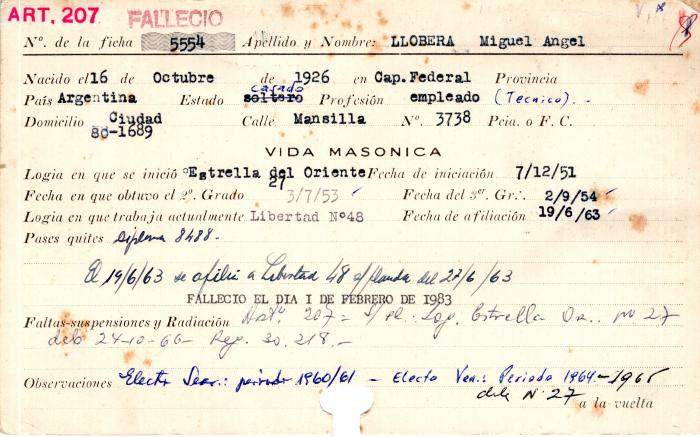 ART. 207 FALLECIO
Nº. de la ficha 5554 Apellido y Nombre: LLOBERA Miguel Angel
Nacido el 16 de Octubre de 1926 en Cap.Federal Provincia
casado
País Argentina Estado soltero Profesión empleado (Tecnico).-
Domicilio Ciudad Calle Mansilla Nº. 3738 Pcia. o F. C.
80-1689
VIDA MASONICA
Logia en que se inició "Estrella del Oriente Fecha de iniciación 7/12/51
27
Fecha en que obtuvo el 2º. Grado 3/7/53 Fecha del 3er. Gr∴. 2/9/54
Logia en que trabaja actualmente Libertad Nº48 Fecha de afiliación 19/6/63
Pases quites Diploma 8488-
El 19/6/63 se afilió a Libertad 48 s/ del 27/6/63
FALLECIO EL DIA I DE FEBRERO DE 1983
Faltas-suspensiones y Radiación 207= Log. Estrella Or.. nº 27
24-10-66- 30.218.-
Observaciones Electo Secr.: periodo 1960/61 - Electo Ven.: Periodo 1964.-1965
de la N° 27
a la vuelta